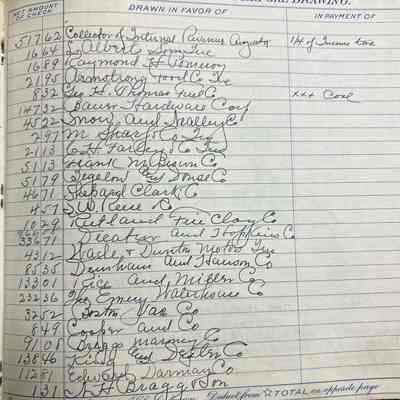 NET AMOUNT OF CHECK DRAWN IN FAVOR OF IN PAYMENT OF
517 62 Collector of Internal Revenue Augusta 1/4 of Income tax
16 64 L Alberts Son Inc
16 89 Raymond H
21 95 Armstrong Co Inc
8 32 Geo H Thomas Fuel Co Coal
147 32 Bauer Hardware Corp
45 22 Snow and Nealley Co
2 97 M Sharf & Co Inc
21 13 C H Farley Co Inc
51 13 Frank M Brown Co
51 79 Bigelow and Dowse Co
46 71 Shepard Clark Co
4 57 S W Co
10 29 Rutland Fire Clay Co
336 71 Decatur and Hopkins Co
43 12 Wade & Dunton Motors Inc
85 35 Dunham and Hanson Co
133 01 Rice and Miller Co
232 36 The Emery Waterhouse Co
32 52 Boston Co
8 49 Cooper and Co
91 08 Bragg Co
138 46 King and Dexter Co
112 81 Edward Co
1 31 H Bragg & Son
Deduct from ☆ TOTAL on opposite page